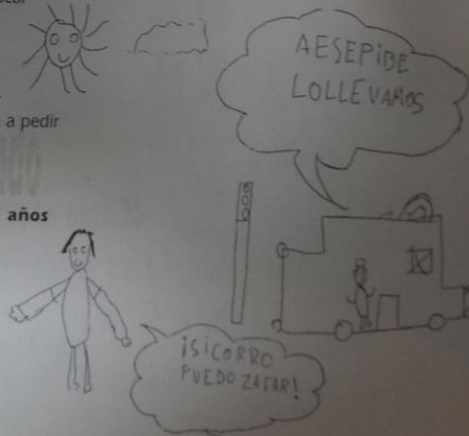 a pedir
años
AESEPIBE
LOLLEVAMOS
¡SICORRO
PUEDOZAFAR!